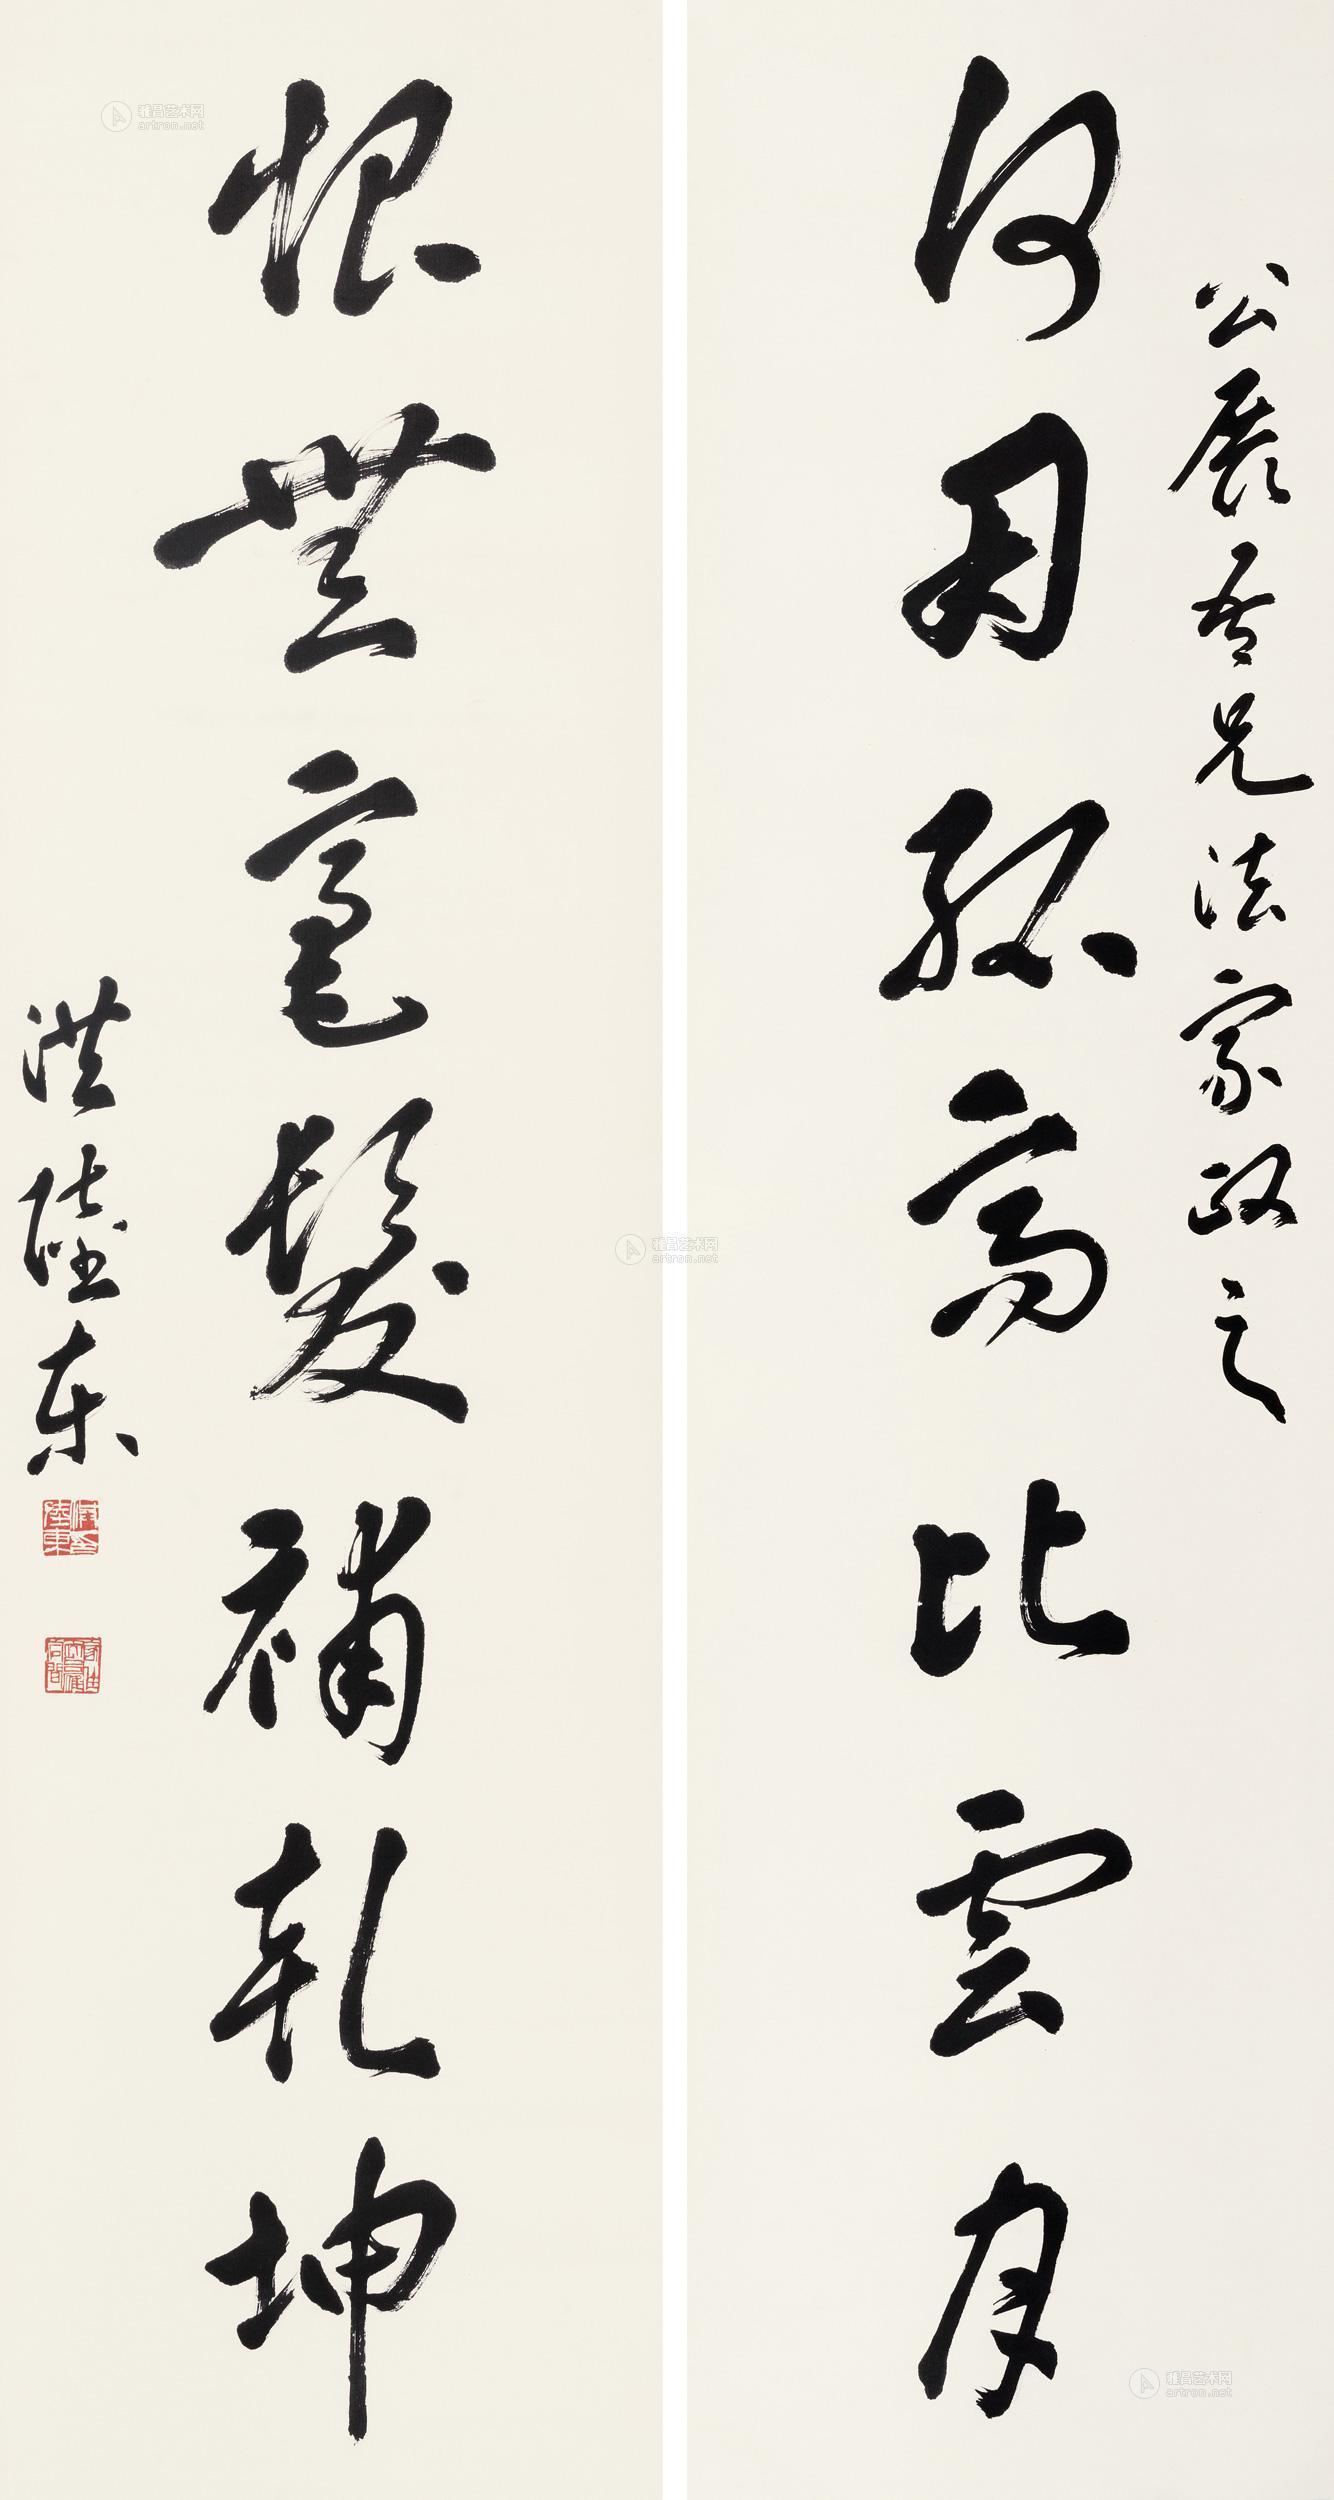 公展吾兄法家政之
何用孤高比雲月
恨無毫髮補乾坤
洪陸東
洪陸東印
雅昌艺术网
artron.net
雅昌艺术网
artron.net
雅昌艺术网
artron.net